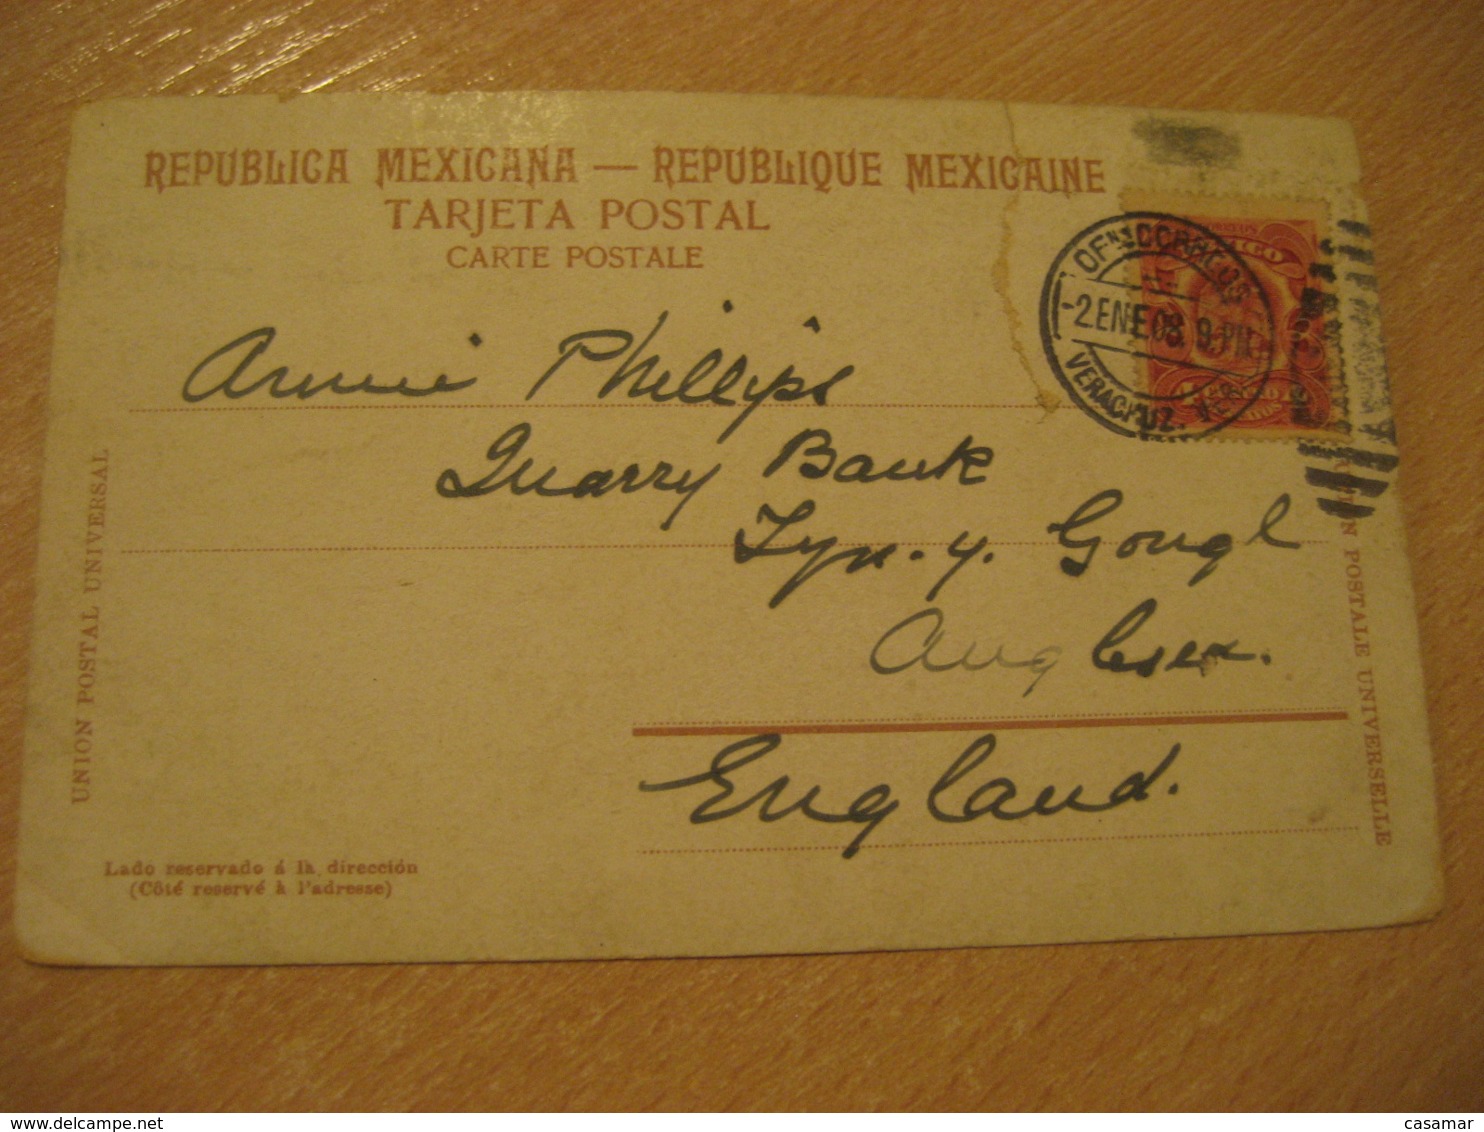 REPUBLICA MEXICANA — REPUBLIQUE MEXICAINE
TARJETA POSTAL
CARTE POSTALE
OFNA CORREOS
2 ENE 08. 9-PM
VERACRUZ. VER
Annie Phillips
Quarry Bank
Tyn-y-Gongl
Anglesea.
England.
UNION POSTAL UNIVERSAL
POSTALE UNIVERSELLE
Lado reservado á la dirección
(Côté reservé à l'adresse)
casamar